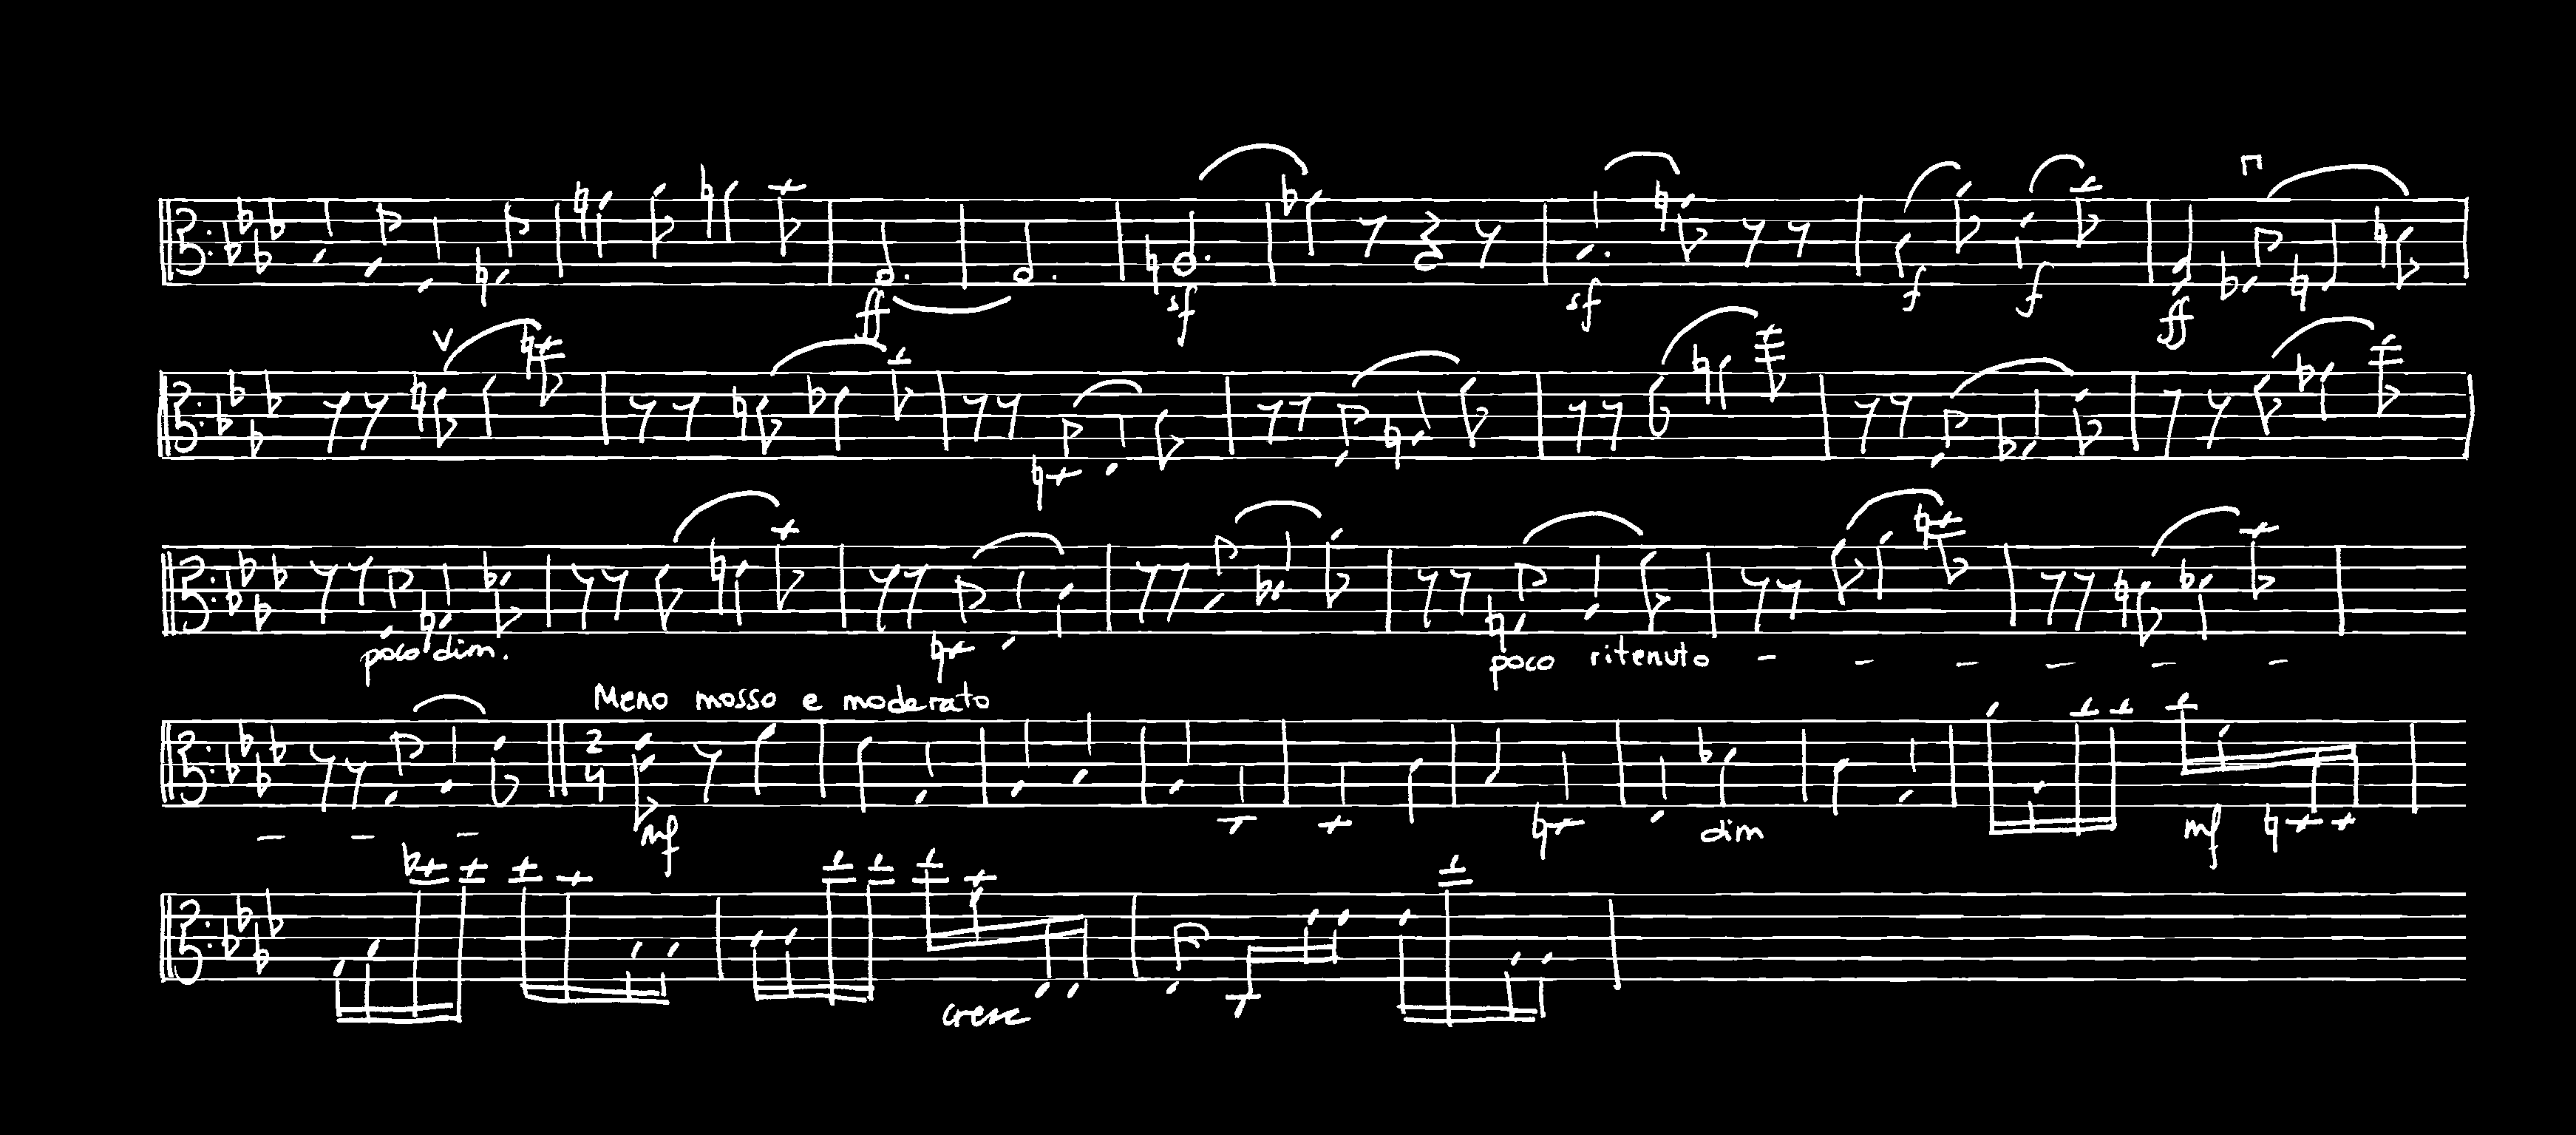 ff sf sf f f ff
poco dim. poco ritenuto - - - - - -
Meno mosso e moderato
2
4
- - - mf dim mf
cresc